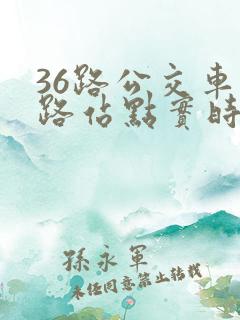 36路公交車
路佔點實時
孫永軍
未经同意禁止转载